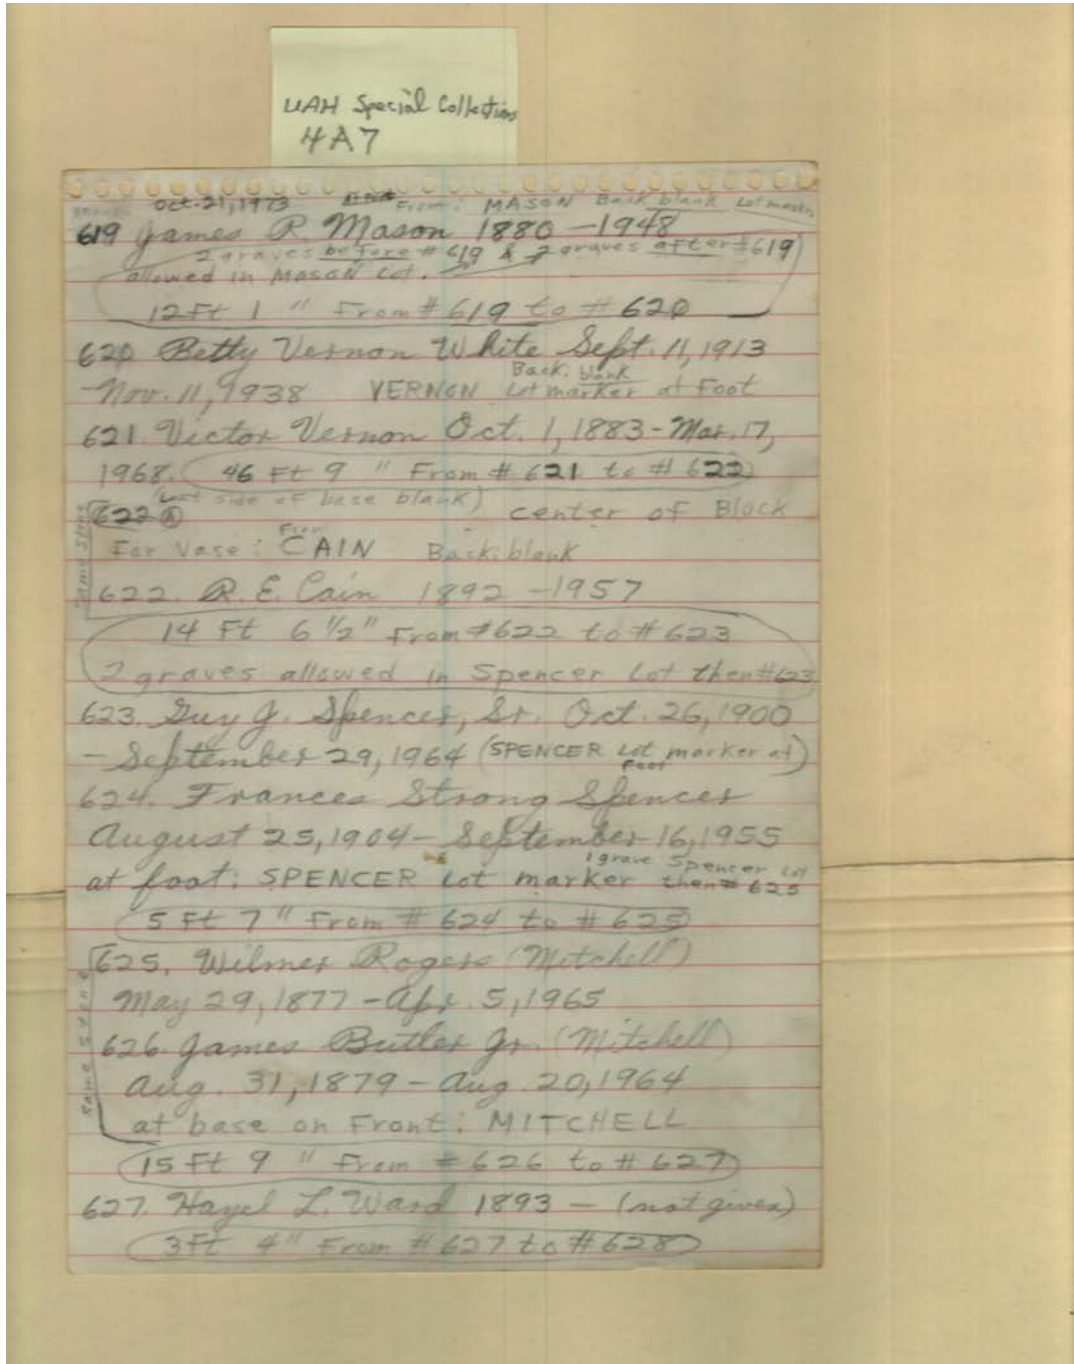 UAH Special Collections
4A7
Oct. 21, 1973 From: MASON Back blank Lot marker
619 James R. Mason 1880 - 1948
2 graves before #619 & 2 graves after #619
allowed in MASON Lot.
12 Ft 1 " From # 619 to # 620
620 Betty Vernon White Sept. 11, 1913
- Nov. 11, 1938 VERNON Back. blank Lot marker at Foot
621. Victor Vernon Oct. 1, 1883 - Mar. 17,
1968. 46 Ft 9 " From # 621 to # 622
(Left side of base blank) center of Block
622 A
For Vase: Front CAIN Back: blank
Same Stone
622. R. E. Cain 1892 - 1957
14 Ft 6 1/2" From #622 to # 623
2 graves allowed in Spencer Lot then #623
623. Guy J. Spencer, Sr. Oct. 26, 1900
- September 29, 1964 (SPENCER Lot marker at Foot)
624. Frances Strong Spencer
August 25, 1904 - September 16, 1955
at foot: SPENCER Lot marker 1 grave Spencer Lot then # 625
5 Ft 7 " From # 624 to # 625
Same Stone
625. Wilmer Rogers (Mitchell)
May 29, 1877 - Apr. 5, 1965
626. James Butler Jr. (Mitchell)
Aug. 31, 1879 - Aug. 20, 1964
at base on Front: MITCHELL
15 Ft 9 " From # 626 to # 627
627. Hazel L. Ward 1893 - (not given)
3 Ft 4" From # 627 to # 628